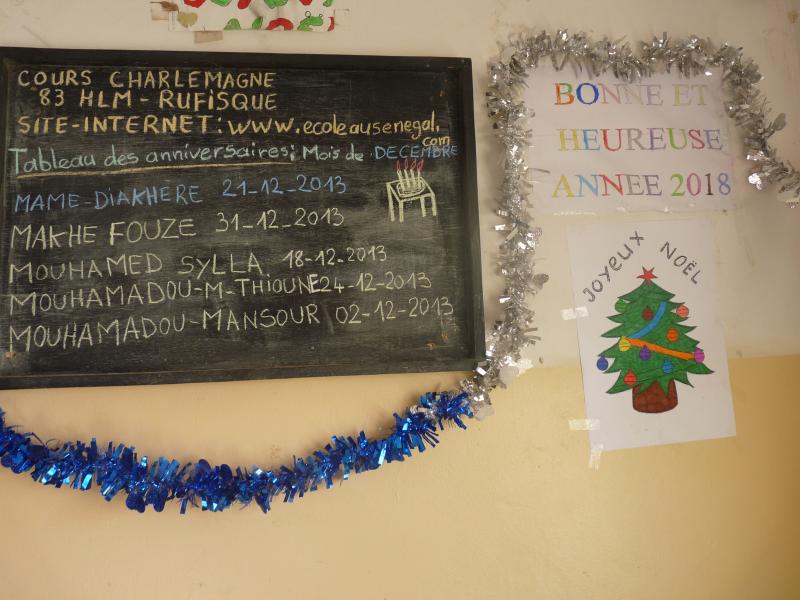 COURS CHARLEMAGNE
83 HLM - RUFISQUE
SITE-INTERNET: www.ecoleausenegal.com
Tableau des anniversaires; Mois de DECEMBRE
MAME-DIAKHERE 21-12-2013
MAKHE FOUZE 31-12-2013
MOUHAMED SYLLA. 18-12-2013
MOUHAMADOU-M-THIOUNE 24-12-2013
MOUHAMADOU-MANSOUR 02-12-2013
BONNE ET
HEUREUSE
ANNEE 2018
JOYEUX NOËL